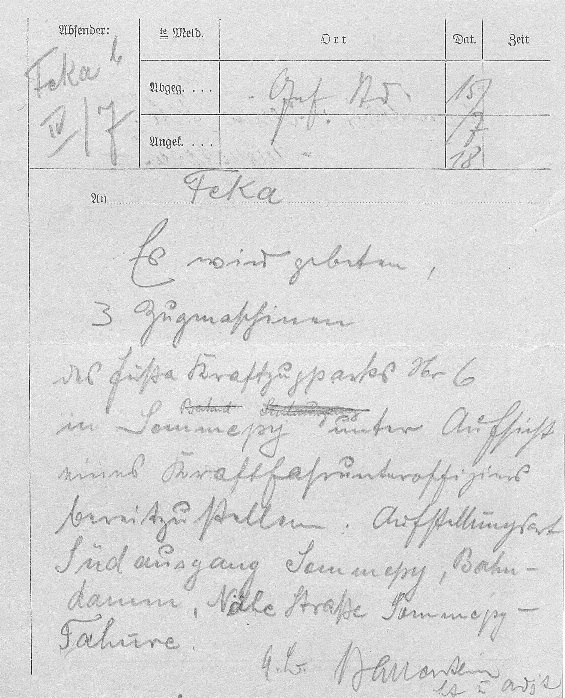 Absender: te Meld. Ort Dat. Zeit
Feka 6
IV/7
Abgeg. . . . Gef. Std. 15/
Angek. . . . 7
18
An Feka
Es wird gebeten,
3 Zugmaschinen
des Fußa Kraftzugparks Nr 6
in Sommepy unter Aufsicht
eines Kraftfahrunteroffiziers
bereitzustellen. Aufstellungsort
Südausgang Sommepy, Bahn-
damm, Nähe Straße Sommepy-
Tahure.